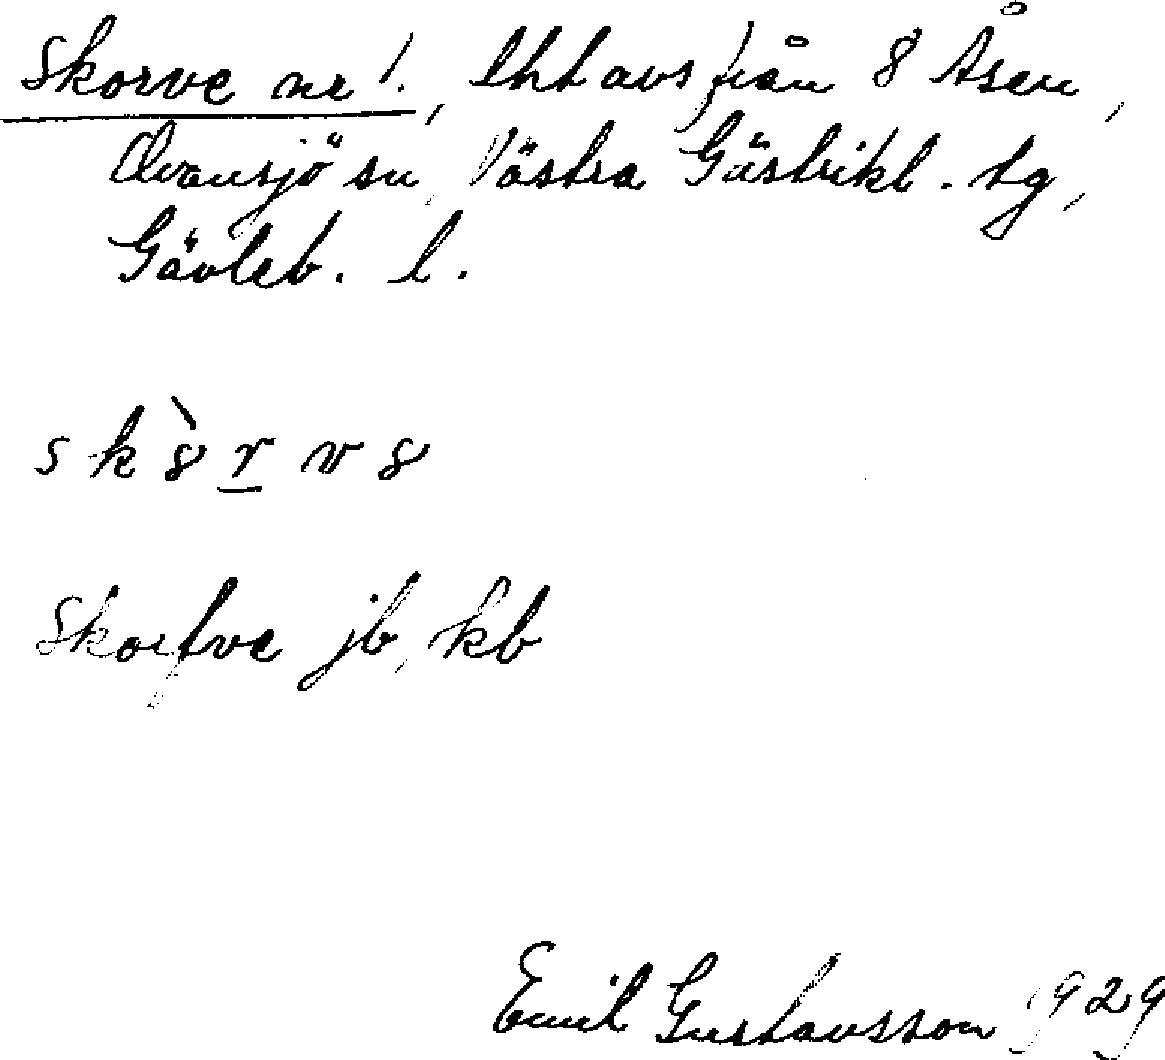 Skorve nr 1., lht avs från 8 Åsen,
Ovansjö sn, Västra Gästrikl. tg,
Gävleb. l.
Skorfve jb, kb
Emil Gustavsson 1929